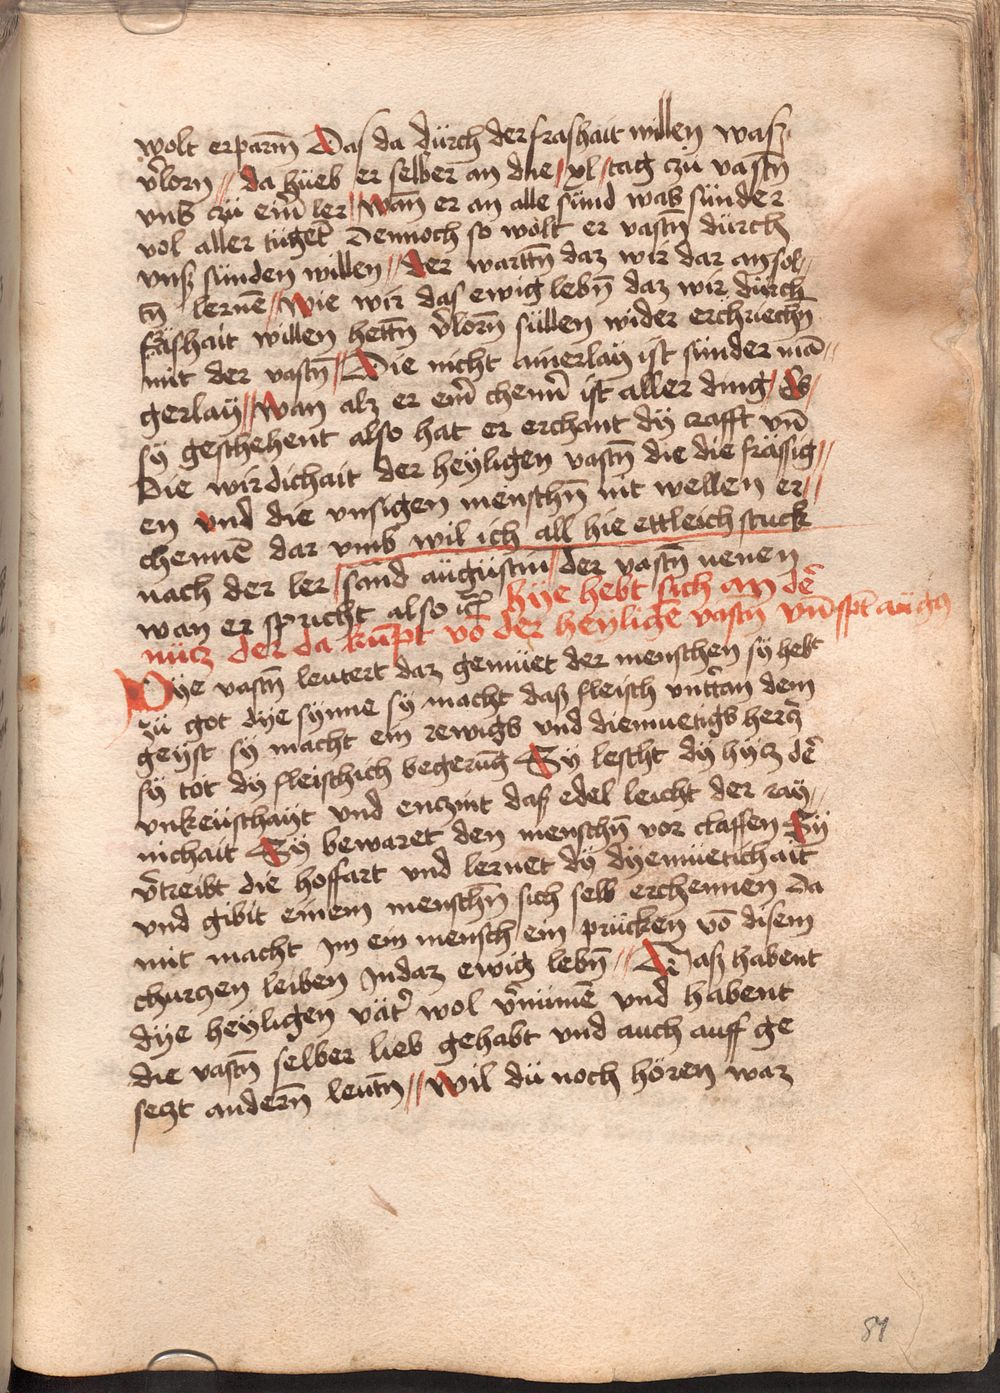 wolt erparm̄ Das da dürch der frashait willen waſz
v̄lorn // da hüeb er selber an die / xl / tag czü vastn̄
vnſz czü eim̄ ler // wan̄ er an alle sünd was sünder
vol aller tüget Dennoch so wolt er vastn̄ dürch
vnſz sünden willen // der warttn̄ daz wir dar an sol//
tn̄ lernē // wie wir das ewig lebn̄ daz wir dürch
frashait willen hettn̄ v̄lorn̄ süllen wider erchriechn̄
mit der vastn̄ // Die nicht ainerlaÿ ist sünder mā//
gerlaÿ // wan alz er ein̄ chenn̄ ist aller ding /
sÿ geschehent also hat er erchant dÿ crafft vn̄
Die wirdichait der heÿligen vastn̄ die die frässig//
en vnd die vnsigen menschn̄ nit wellen er//
chennē dar vmb wil ich all hie ettleich stuck
nach der ler / sand augustin / der vastn̄ nenen
wan er spricht also hÿe hebt sich an de᷑
nücz der da kūpt vō der heÿligē vastn̄ vn̄ spt augꝰ
Dÿe vastn̄ leutert daz gemüet der menschen sÿ hebt
zü got dÿe sÿnne sÿ macht daſz fleisch vntt᷑an dem
geÿst sÿ macht ein rewigs vnd diemuetigs hercz
sÿ tot dÿ fleischich begerūg Sÿ lescht dÿ hÿcz de᷑
vnkeüschaÿt vnd enczint daſz edel leicht der raÿ//
nichait Sÿ bewaret den menschn̄ vor claffen Sÿ
v̄treibt die hoffart vnd lernet dÿ dÿemüetichait
vnd gibit einem menschn̄ sich selb erchennen Da
mit macht Im ein mensch ein prücken vō disem
churczen leiben In daz ewig lebn̄ // Daſz habent
dÿe heÿligen vät᷑ wol v̄nümē vnd habent
die vastn̄ selber lieb gehabt vnd auch auff ge
seczt andern̄ leutn̄ // wil dü noch hören waz
84